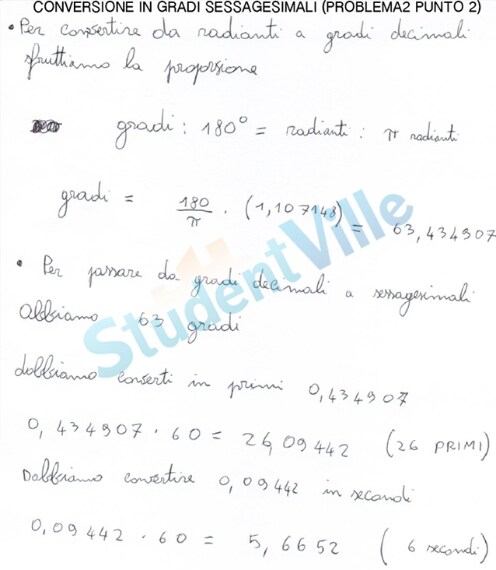 CONVERSIONE IN GRADI SESSAGESIMALI (PROBLEMA2 PUNTO 2)
• Per convertire da radianti a gradi decimali
sfruttiamo la proporsione
gradi : 180° = radianti : π radianti
gradi = 180/π · (1,107148) = 63,434907
• Per passare da gradi decimali a sessagesimali
abbiamo 63 gradi
dobbiamo converti in primi 0,434907
0,434907 · 60 = 26,09442 (26 PRIMI)
Dobbiamo convertire 0,09442 in secondi
0,09442 · 60 = 5,6652 (6 secondi)
StudentVille